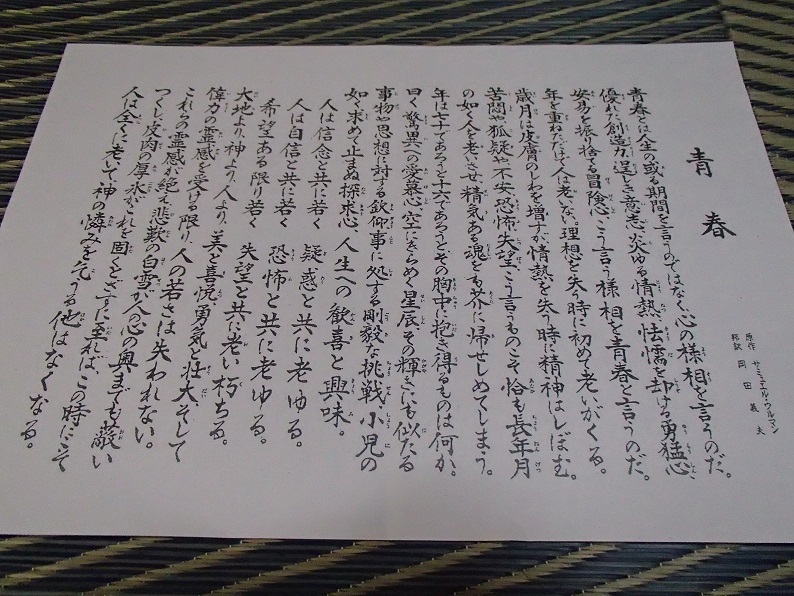 青春
原作 サミュエル・ウルマン
邦訳 岡田義夫
青春とは人生の或る期間を言うのではなく心の様相を言うのだ。
優れた創造力、逞しき意志、炎ゆる情熱、怯懦を却ける勇猛心、
安易を振り捨てる冒険心、こう言う様相を青春と言うのだ。
年を重ねただけで人は老いない。理想を失う時に初めて老いがくる。
歳月は皮膚のしわを増すが、情熱を失う時に精神はしぼむ。
苦悶や狐疑や不安、恐怖、失望、こう言うものこそ恰も長年月
の如く人を老いさせ、精気ある魂をも芥に帰せしめてしまう。
年は七十であろうと十六であろうと、その胸中に抱き得るものは何か。
曰く驚異への愛慕心、空にきらめく星辰、その輝きにも似たる
事物や思想に対する欽仰、事に処する剛毅な挑戦、小児の
如く求めて止まぬ探求心、人生への歓喜と興味。
人は信念と共に若く 疑惑と共に老ゆる。
人は自信と共に若く 恐怖と共に老ゆる。
希望ある限り若く 失望と共に老い朽ちる。
大地より、神より、人より、美と喜悦、勇気と壮大、そして
偉力の霊感を受ける限り、人の若さは失われない。
これらの霊感が絶え、悲歎の白雪が人の心の奥までも蔽い
つくし、皮肉の厚氷がこれを固くとざすに至れば、この時にこそ
人は全くに老いて、神の憐みを乞うる他はなくなる。